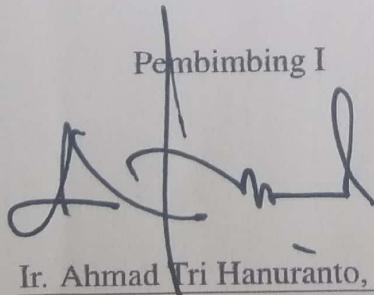 Pembimbing I
Ir. Ahmad Tri Hanuranto,